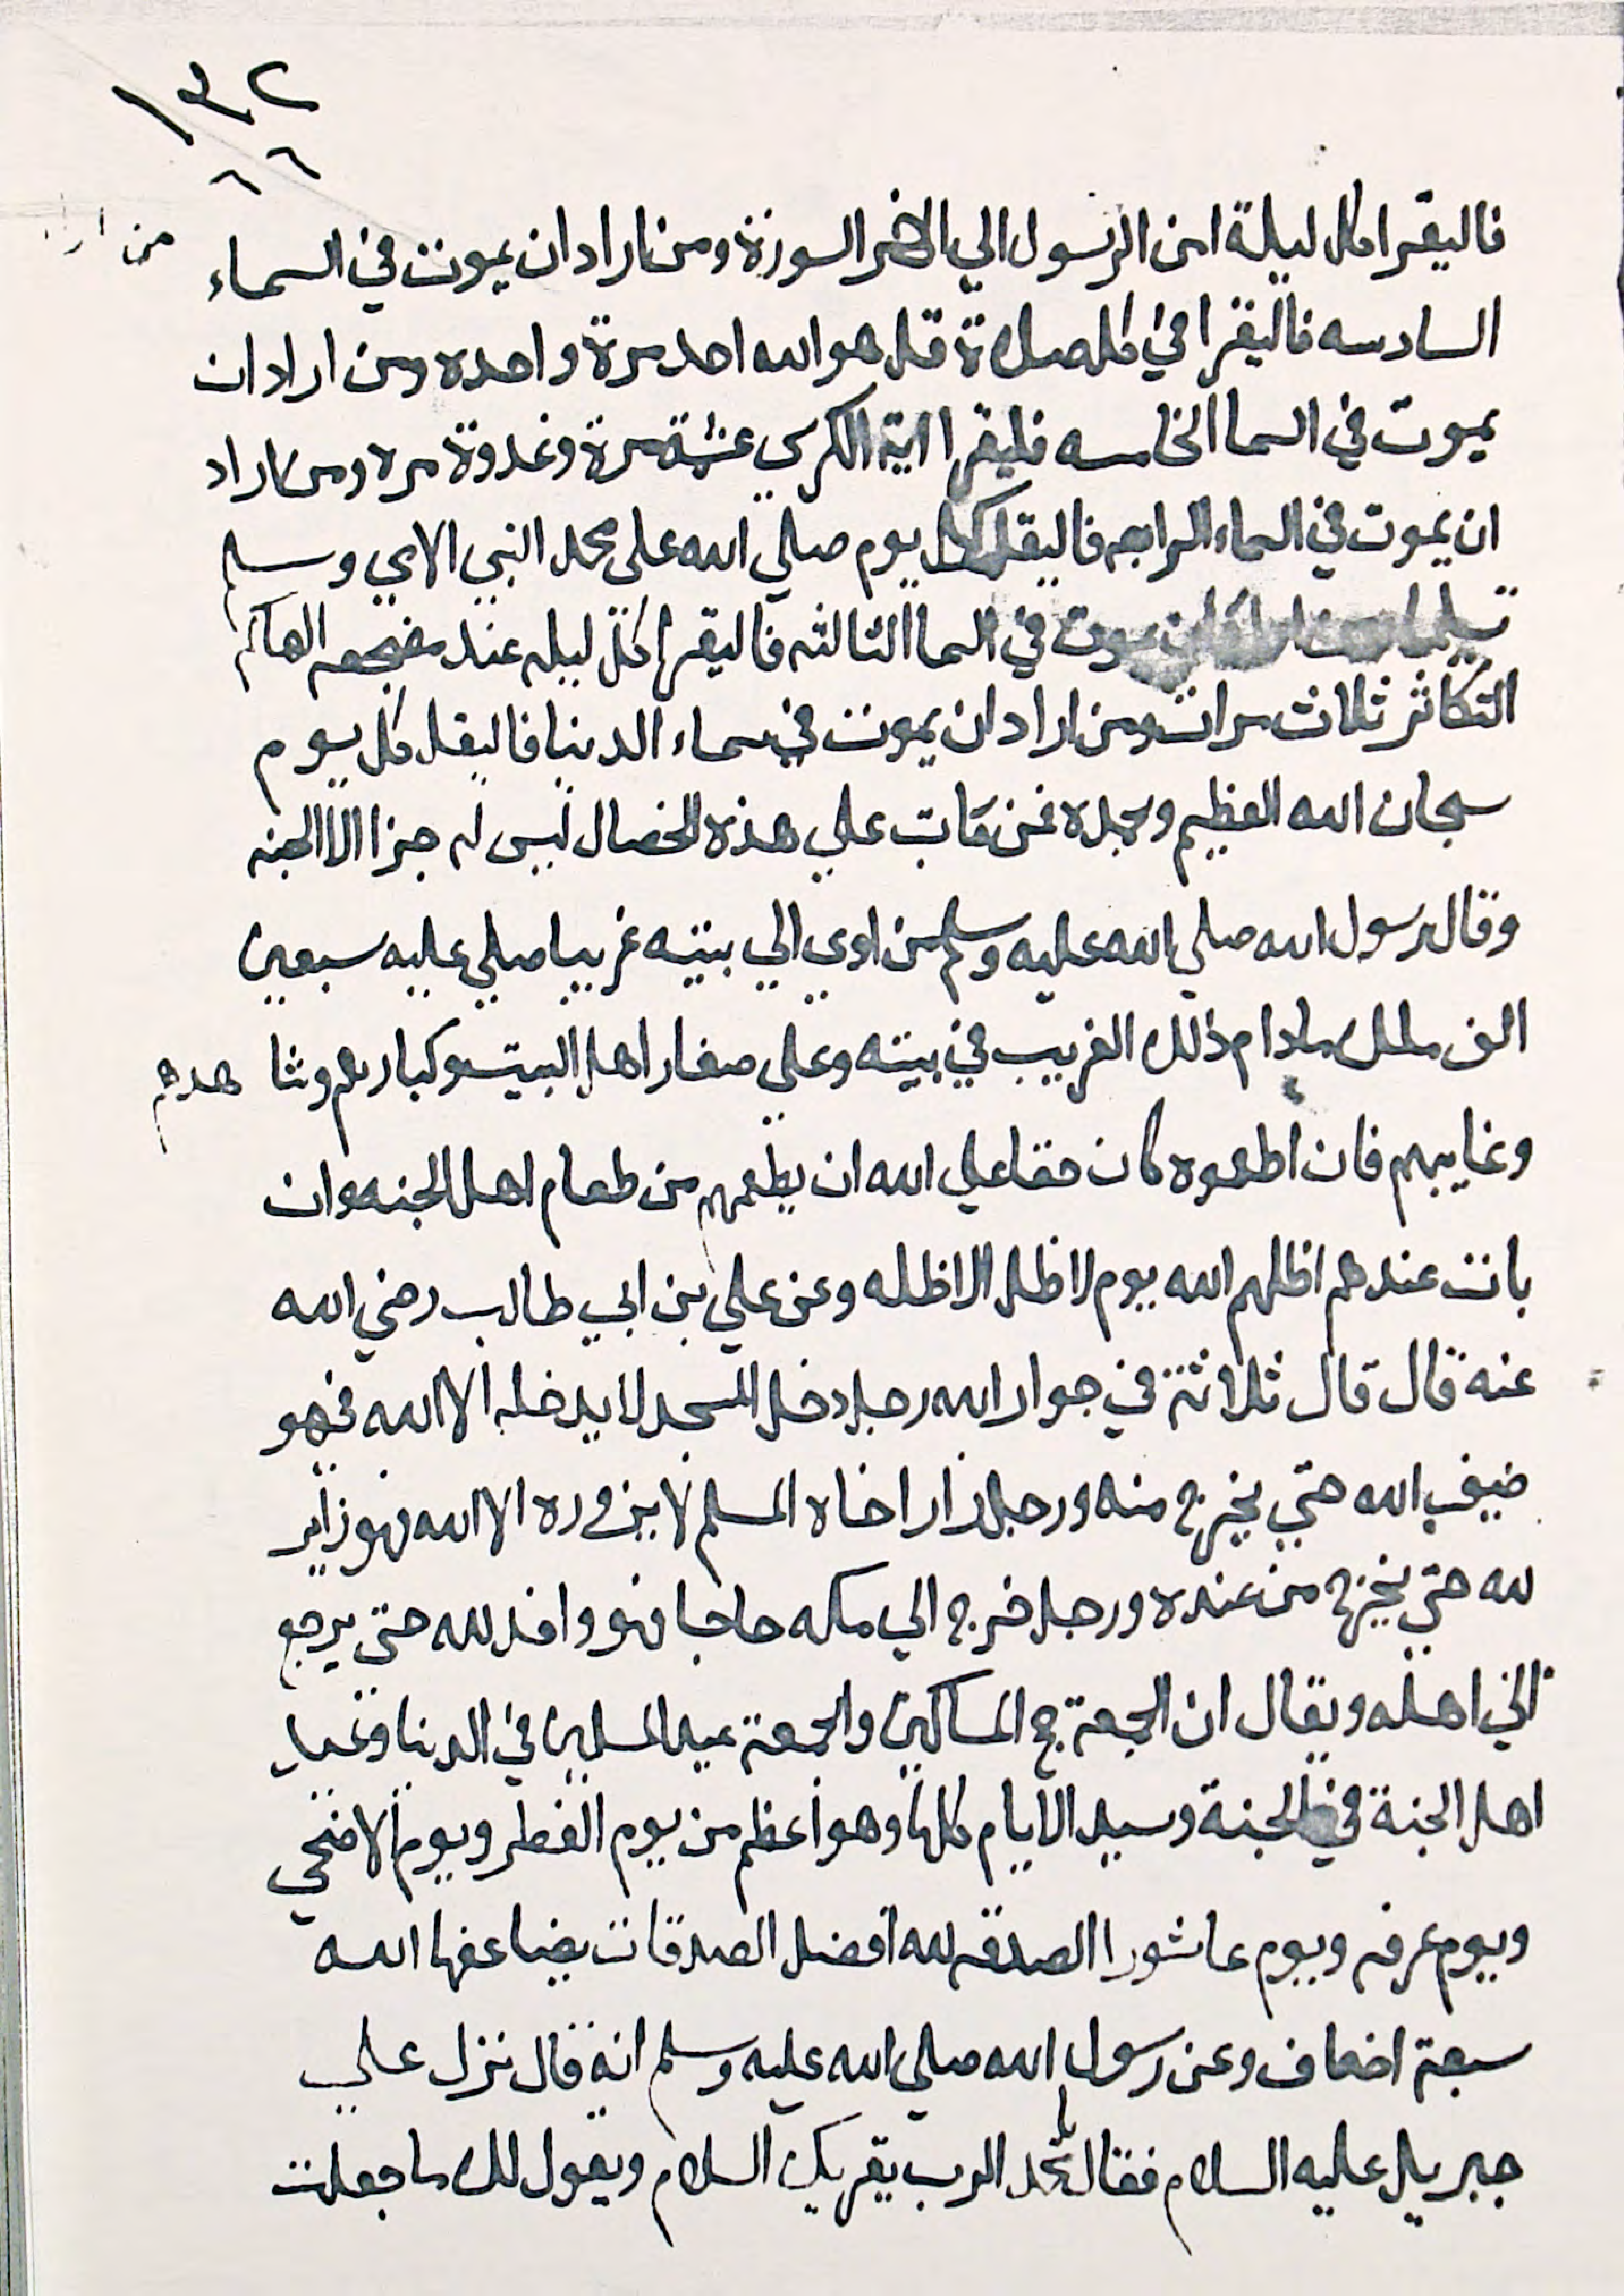 ١٣٢
٦٦
فاليقرا كل ليلة امن الرسول الي الاخر السورة ومن اراد ان يموت في السماء
السادسه فاليقرا في كل صلاة قل هو الله احد مرة واحده ومن اراد ان
يموت في السما الخامسه فليقرا اية الكرسي عشية مرة وغدوة مره ومن اراد
ان يموت في السماء الرابعه فاليقل كل يوم صلي الله على محمد النبي الامي وسلم
تسليما يموت في السما الثالثه فاليقرا كل ليله عند مضجعه الهاكم
التكاثر ثلاث مرات ومن اراد ان يموت في سماء الدنيا فاليقل كل يوم
سبحان الله العظيم وبحمده فمن مات علي هذه الخصال ليس له جزا الا الجنه
وقال رسول الله صلي الله عليه وسلم من اوي الي بيته غريبا صلي عليه سبعين
الف ملك مادام ذلك الغريب في بيته وعلى صغار اهل البيت وكبارهم وشا هدهم
وغايبهم فان اطعموه كان حقا علي الله ان يطعمهم من طعام اهل الجنه وان
بات عندهم اظلهم الله يوم لا ظل الا ظله وعن علي بن ابي طالب رضي الله
عنه قال قال ثلاثة في جوار الله رجل دخل المسجد لا يدخله الا لله فهو
ضيف الله حتي يخرج منه ورجل زار اخاه المسلم لا يزوره الا لله فهو زاير
لله حتي يخرج من عنده ورجل خرج الي مكه حاجا فهو وافد لله حتي يرجع
الي اهله ويقال ان الجمعة حج المساكين والجمعة عيد المسلمين في الدنيا وعيد
اهل الجنة في الجنة وسيد الايام كلها وهو اعظم من يوم الفطر ويوم الاضحي
ويوم عرفه ويوم عاشورا الصدقه لله افضل الصدقات يضاعفها الله
سبعة اضعاف وعن رسول الله صلي الله عليه وسلم انه قال نزل علي
جبريل عليه السلام فقال يا محمد الرب يقريك السلام ويقول لك ما جعلت